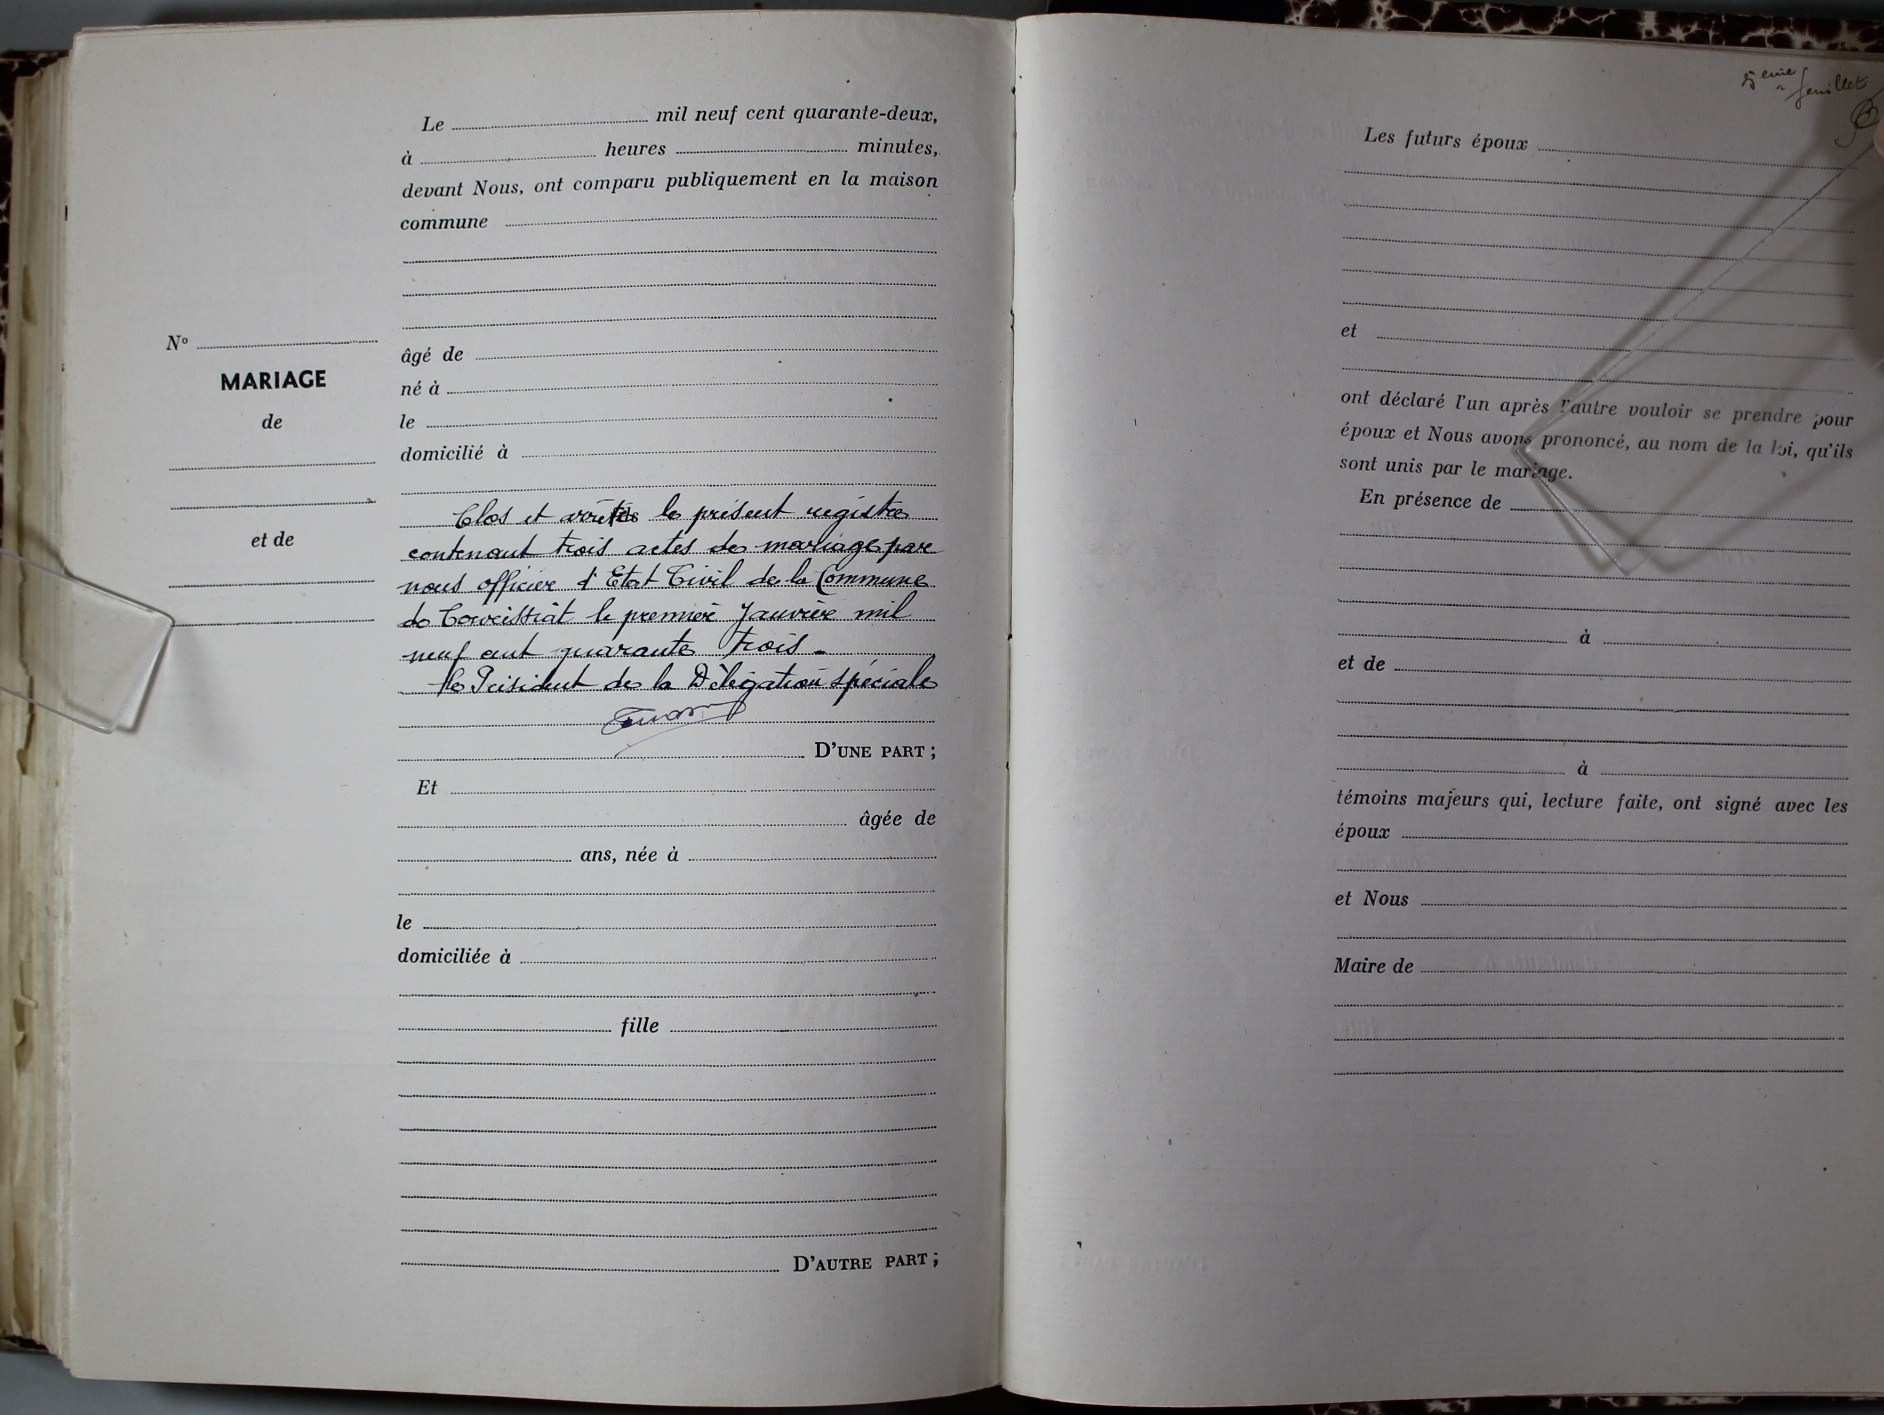 Le mil neuf cent quarante-deux,
à heures minutes,
devant Nous, ont comparu publiquement en la maison
commune
âgé de
né à
le
domicilié à
Nº
MARIAGE
de
et de
Clos et arrêté le présent registre
contenant trois actes de mariage par
nous officier d'Etat Civil de la Commune
de Corveissiat le premier Janvier mil
neuf cent quarante trois.
Le Président de la Délégation spéciale
D'UNE PART ;
Et
âgée de
ans, née à
le
domiciliée à
fille
D'AUTRE PART ;
5eme feuillet
Les futurs époux
et
ont déclaré l'un après l'autre vouloir se prendre pour
époux et Nous avons prononcé, au nom de la loi, qu'ils
sont unis par le mariage.
En présence de
à
et de
à
témoins majeurs qui, lecture faite, ont signé avec les
époux
et Nous
Maire de